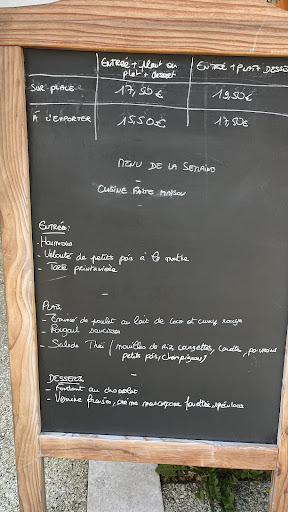 ENTRÉE + PLAT OU PLAT + DESSERT
ENTRÉE + PLAT + DESSE
SUR PLACE 17,50€ 19,50€
À L'EMPORTER 15,50€ 17,50€
MENU DE LA SEMAINE
CUISINE FAITE MAISON
ENTRÉE:
- Houmous
- Velouté de petits pois à la menthe
- Tarte printanière
PLATS
- Émincé de poulet au lait de coco et curry rouge
- Rougail saucisses
- Salade Thaï (nouilles de riz courgettes, carotte, poivrons
petits pois, champignons)
DESSERTS
- Fondant au chocolat
- Verrine fraises, crème mascarpone fouettée, spéculoos